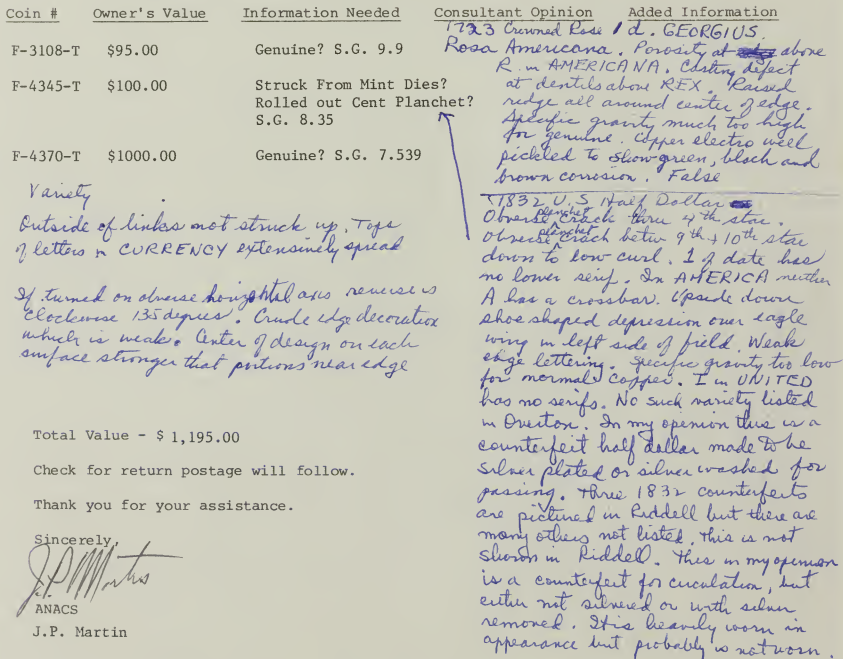 Coin # Owner's Value Information Needed Consultant Opinion Added Information
F-3108-T $95.00 Genuine? S.G. 9.9
F-4345-T $100.00 Struck From Mint Dies?
Rolled out Cent Planchet?
S.G. 8.35
F-4370-T $1000.00 Genuine? S.G. 7.539
Variety
Outside of links not struck up. Tops
of letters in CURRENCY extensively spread
If turned on obverse horizontal axis reverse is
clockwise 135 degrees. Crude edge decoration
which is weak. Center of design on each
surface stronger that portions near edge
Total Value - $ 1,195.00
Check for return postage will follow.
Thank you for your assistance.
Sincerely,
J.P. Martin
ANACS
J.P. Martin
1723 Crowned Rose 1 d. GEORGIUS.
Rosa Americana. Porosity at above
R in AMERICANA. Casting defect
at dentils above REX. Raised
ridge all around center of edge.
Specific gravity much too high
for genuine. Copper electro well
pickled to show green, black and
brown corrosion. False
1832 U.S. Half Dollar
Obverse planchet crack thru 4th star.
Obverse planchet crack betw 9th + 10th star
down to low curl. 1 of date has
no lower serif. In AMERICA neither
A has a crossbar. Upside down
shoe shaped depression over eagle
wing in left side of field. Weak
edge lettering. Specific gravity too low
for normal copper. I in UNITED
has no serifs. No such variety listed
in Overton. In my openion this is a
counterfeit half dollar made to be
silver plated or silver washed for
passing. Three 1832 counterfeits
are pictured in Riddell but there are
many others not listed. This is not
shown in Riddell. This in my openion
is a counterfeit for circulation, but
either not silvered or with silver
removed. It is heavily worn in
appearance but probably is not worn.